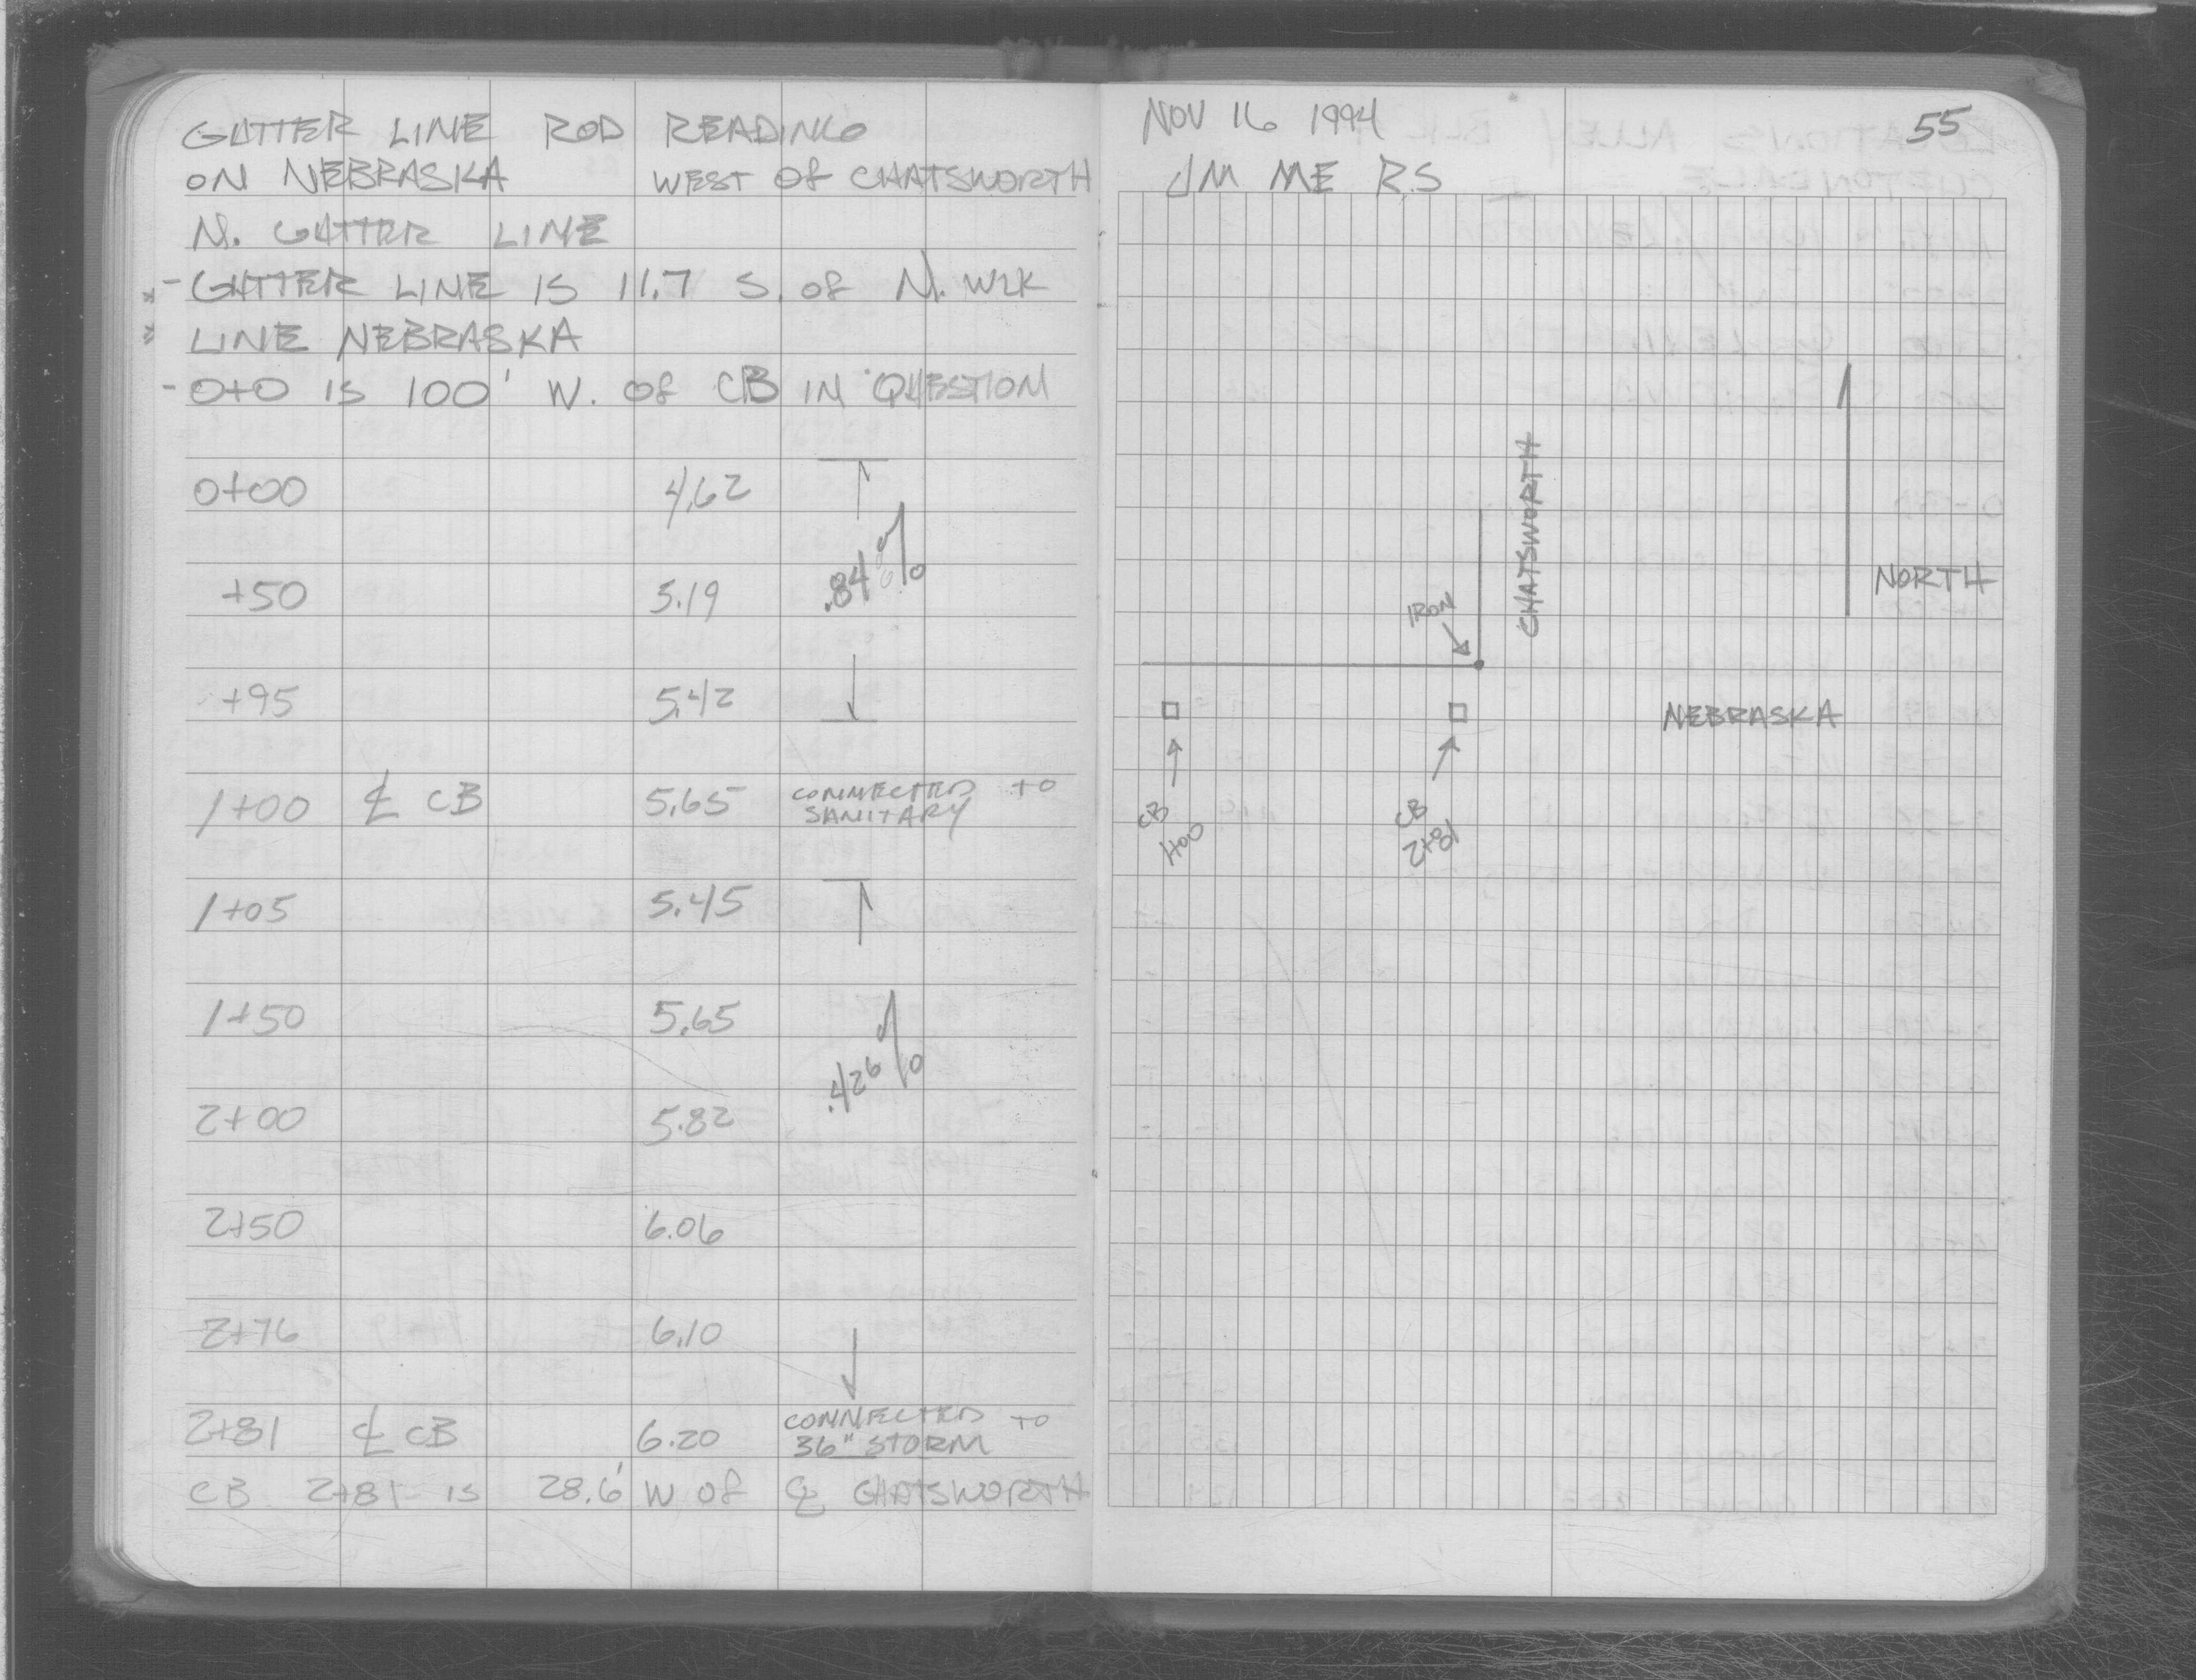 GUTTER LINE ROD READING
ON NEBRASKA WEST OF CHATSWORTH
N. GUTTER LINE
- GUTTER LINE IS 11.7 S. OF N. WLK
LINE NEBRASKA
- 0+0 IS 100' W. OF CB IN QUESTION
0+00 4.62
+50 5.19 .84%
+95 5.42
1+00 ℄ CB 5.65 CONNECTED TO
SANITARY
1+05 5.45
1+50 5.65
.426%
2+00 5.82
2+50 6.06
2+76 6.10
2+81 ℄ CB 6.20 CONNECTED TO
36" STORM
CB 2+81 IS 28.6' W OF ℄ CHATSWORTH
NOV 16 1994 55
JM ME R.S
CHATSWORTH
NORTH
IRON
NEBRASKA
CB
1+00
CB
2+81